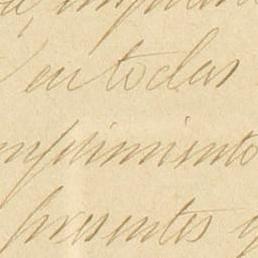 en todas
mplimiento
presentes y